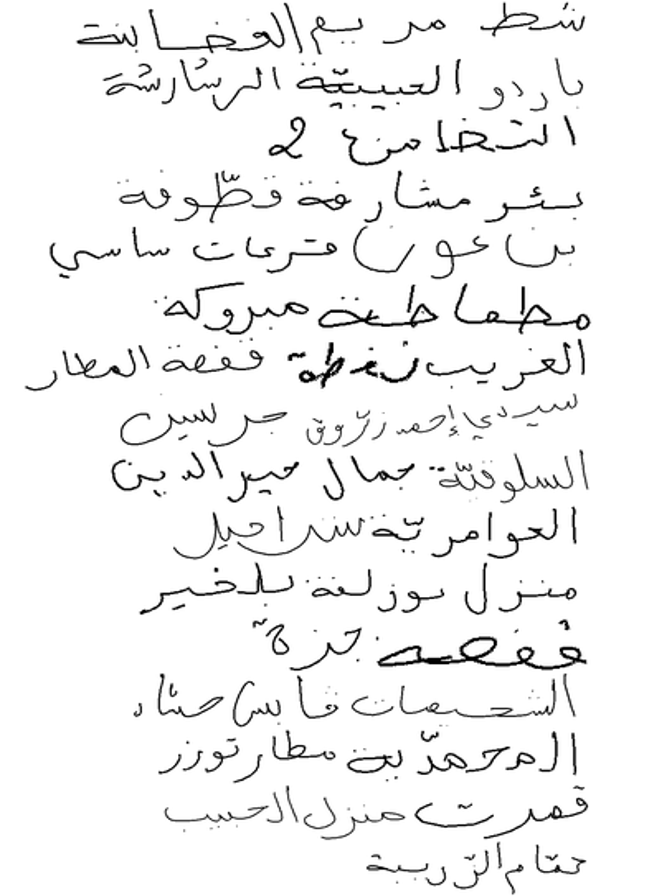 شط مريم الغضابنة
باردو العبيبيّة الرشارشة
النخامن 2
بئر مشارقة قطّوفة
بن عون قرعات ساسي
مطماطة مبروكة
الغريب نفطة قفصة المطار
سيدي إحمد زرّوق جرسين
السلوقيّة جمال خير الدين
العوامريّة سراحيل
منزل بوزلفة بلخير
قفصة جزة
الشحيمات قابس حشاد
المحمديّة مطار توزر
قمرت منزل الحبيب
حمّام الزريبة